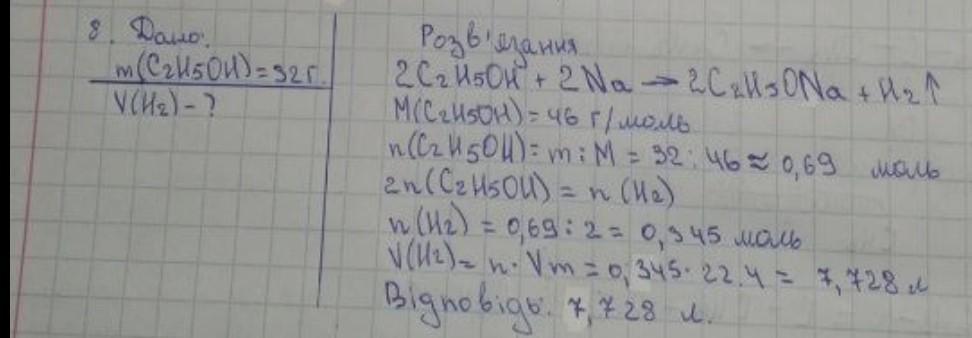 8. Дано:
m(C2H5OH)=32г.
V(H2)-?
Розв'язання
2C2H5OH + 2Na → 2C2H5ONa + H2↑
M(C2H5OH)=46 г/моль
n(C2H5OH)= m : M = 32 : 46 ≈ 0,69 моль
2n(C2H5OH) = n (H2)
n(H2) = 0,69 : 2 = 0,345 моль
V(H2)= n · Vm = 0,345 · 22.4 = 7,728 л
Відповідь: 7,728 л.